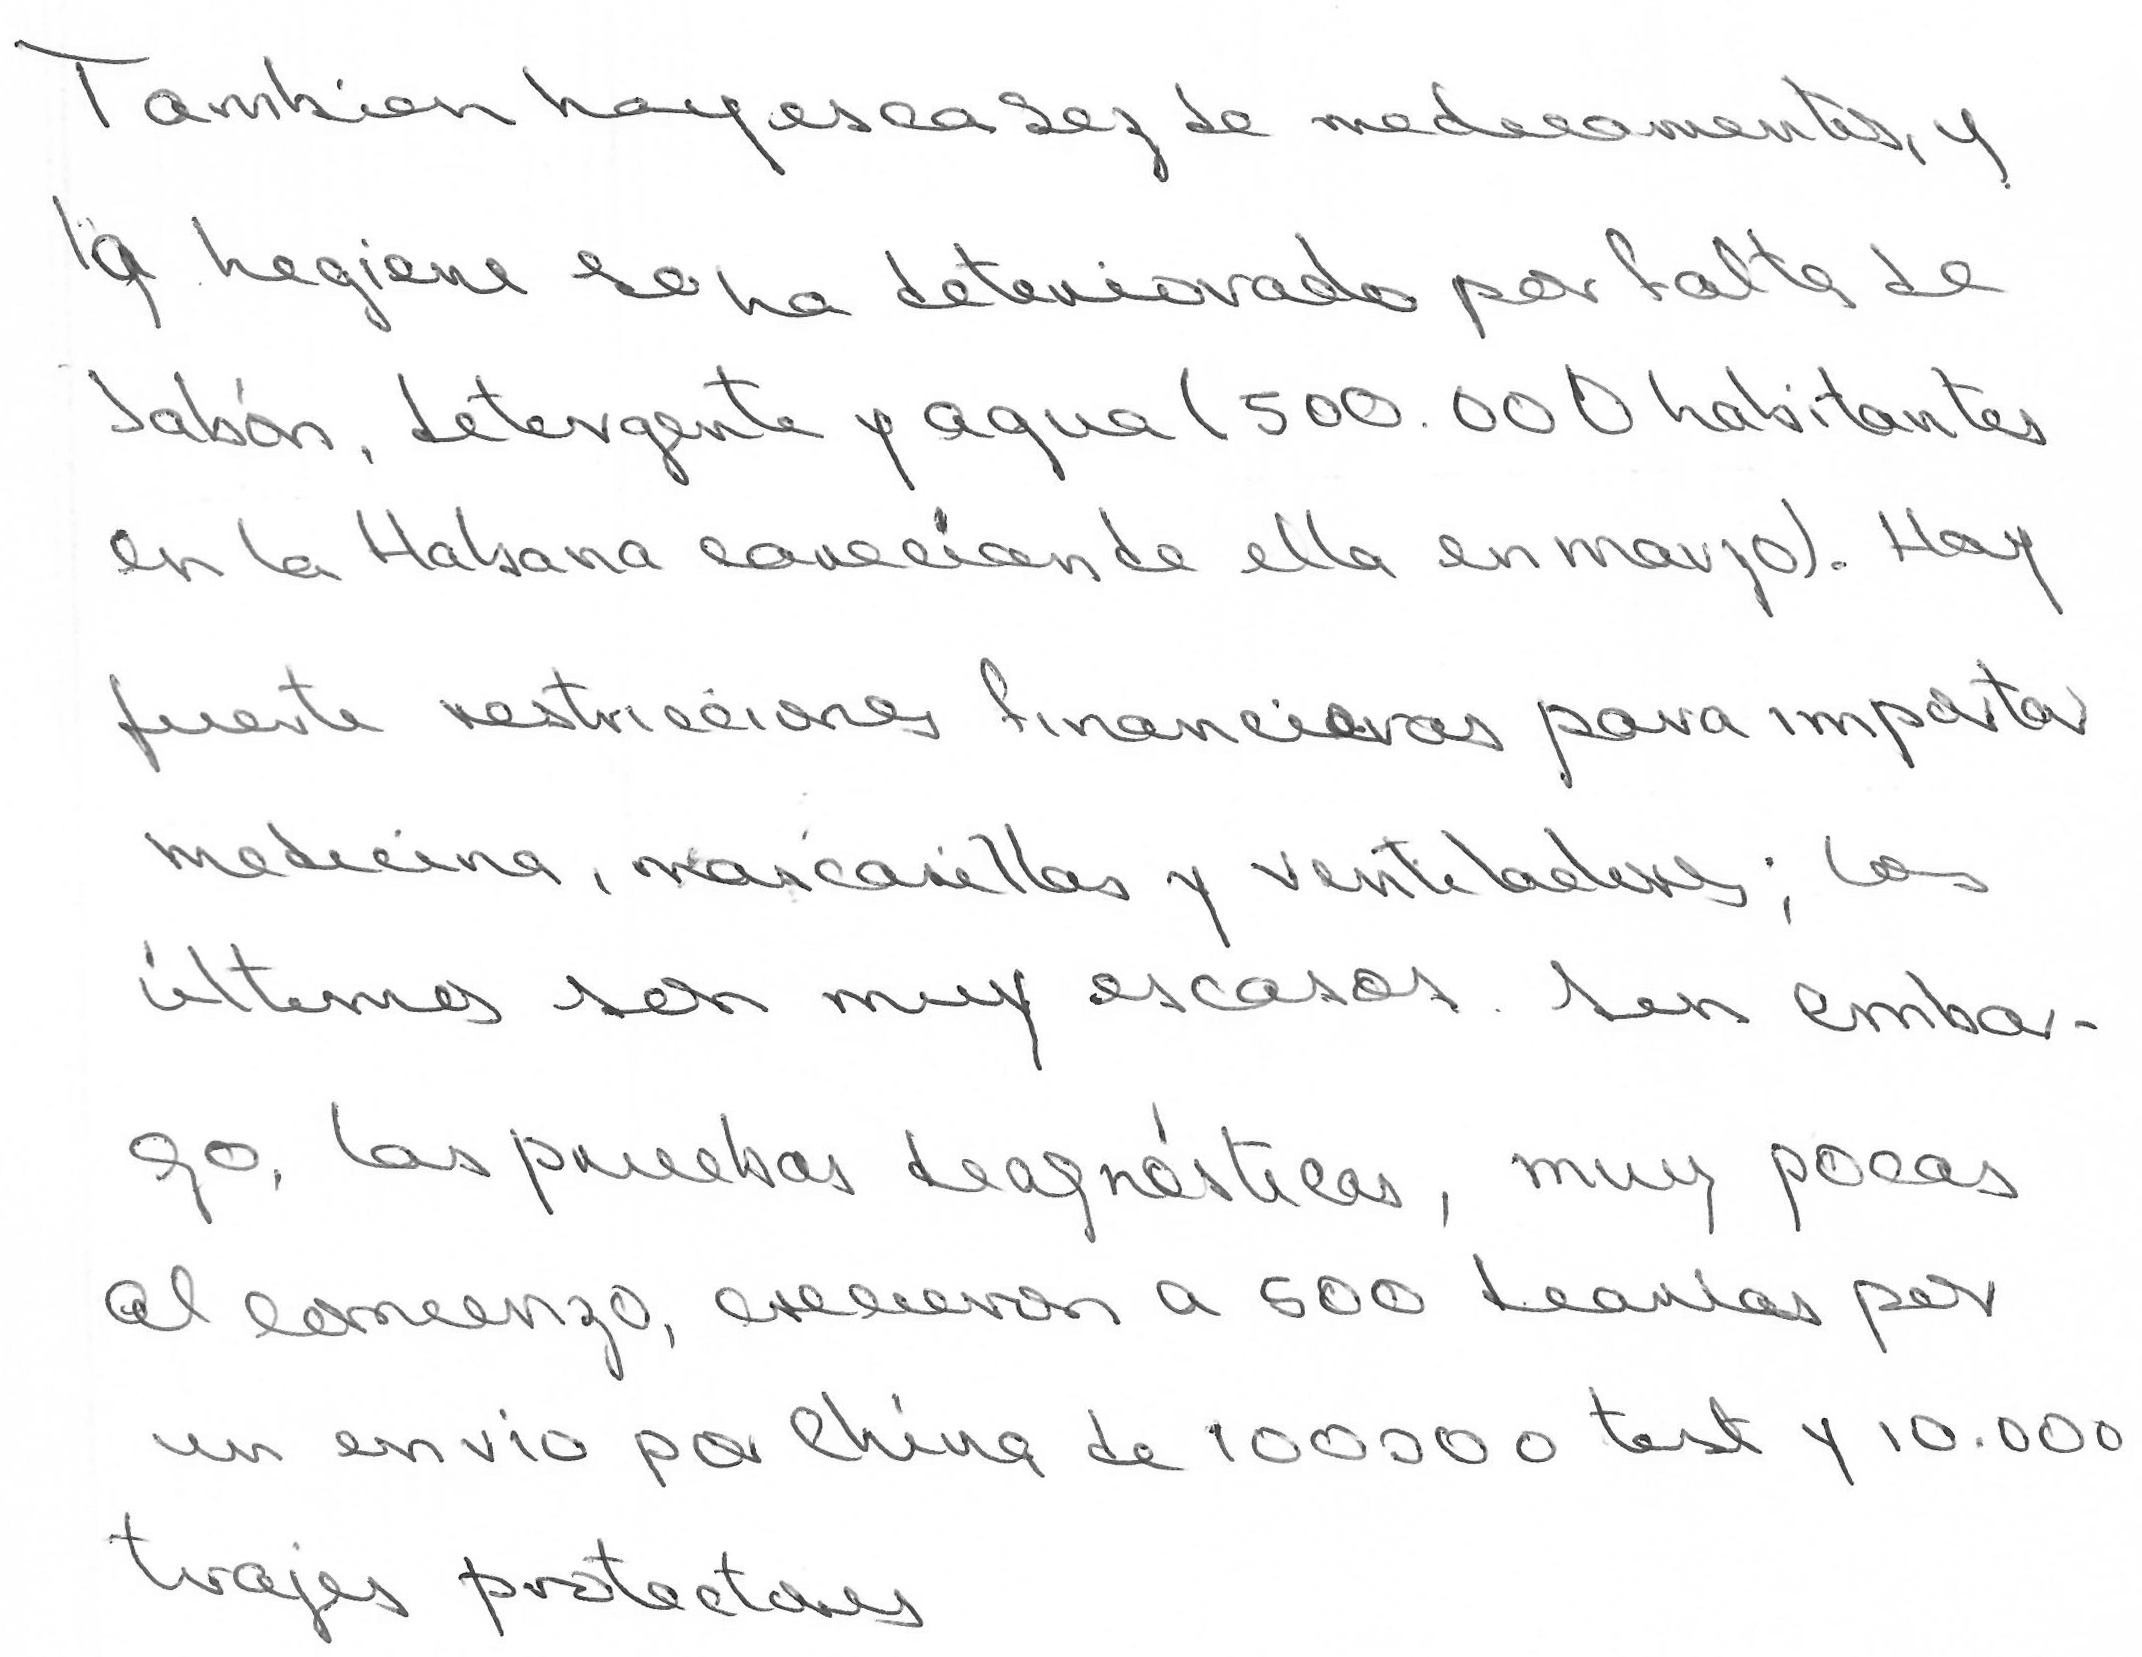 Tambien hay escasez de medicamentos, y
la hegiene se ha deteriorado por falta de
Jabón, detergente y agua (500.000 habitantes
en la Habana carecían de ella en marzo). Hay
fuerte restricciones financieras para importar
medicina, mascarillas y ventiladores; los
últimos son muy escasos. Sin embar-
go, las pruebas diagnósticas, muy pocas
al comienzo, crecieron a 500 diarias por
un envio por China de 100000 test y 10.000
trajes protectores